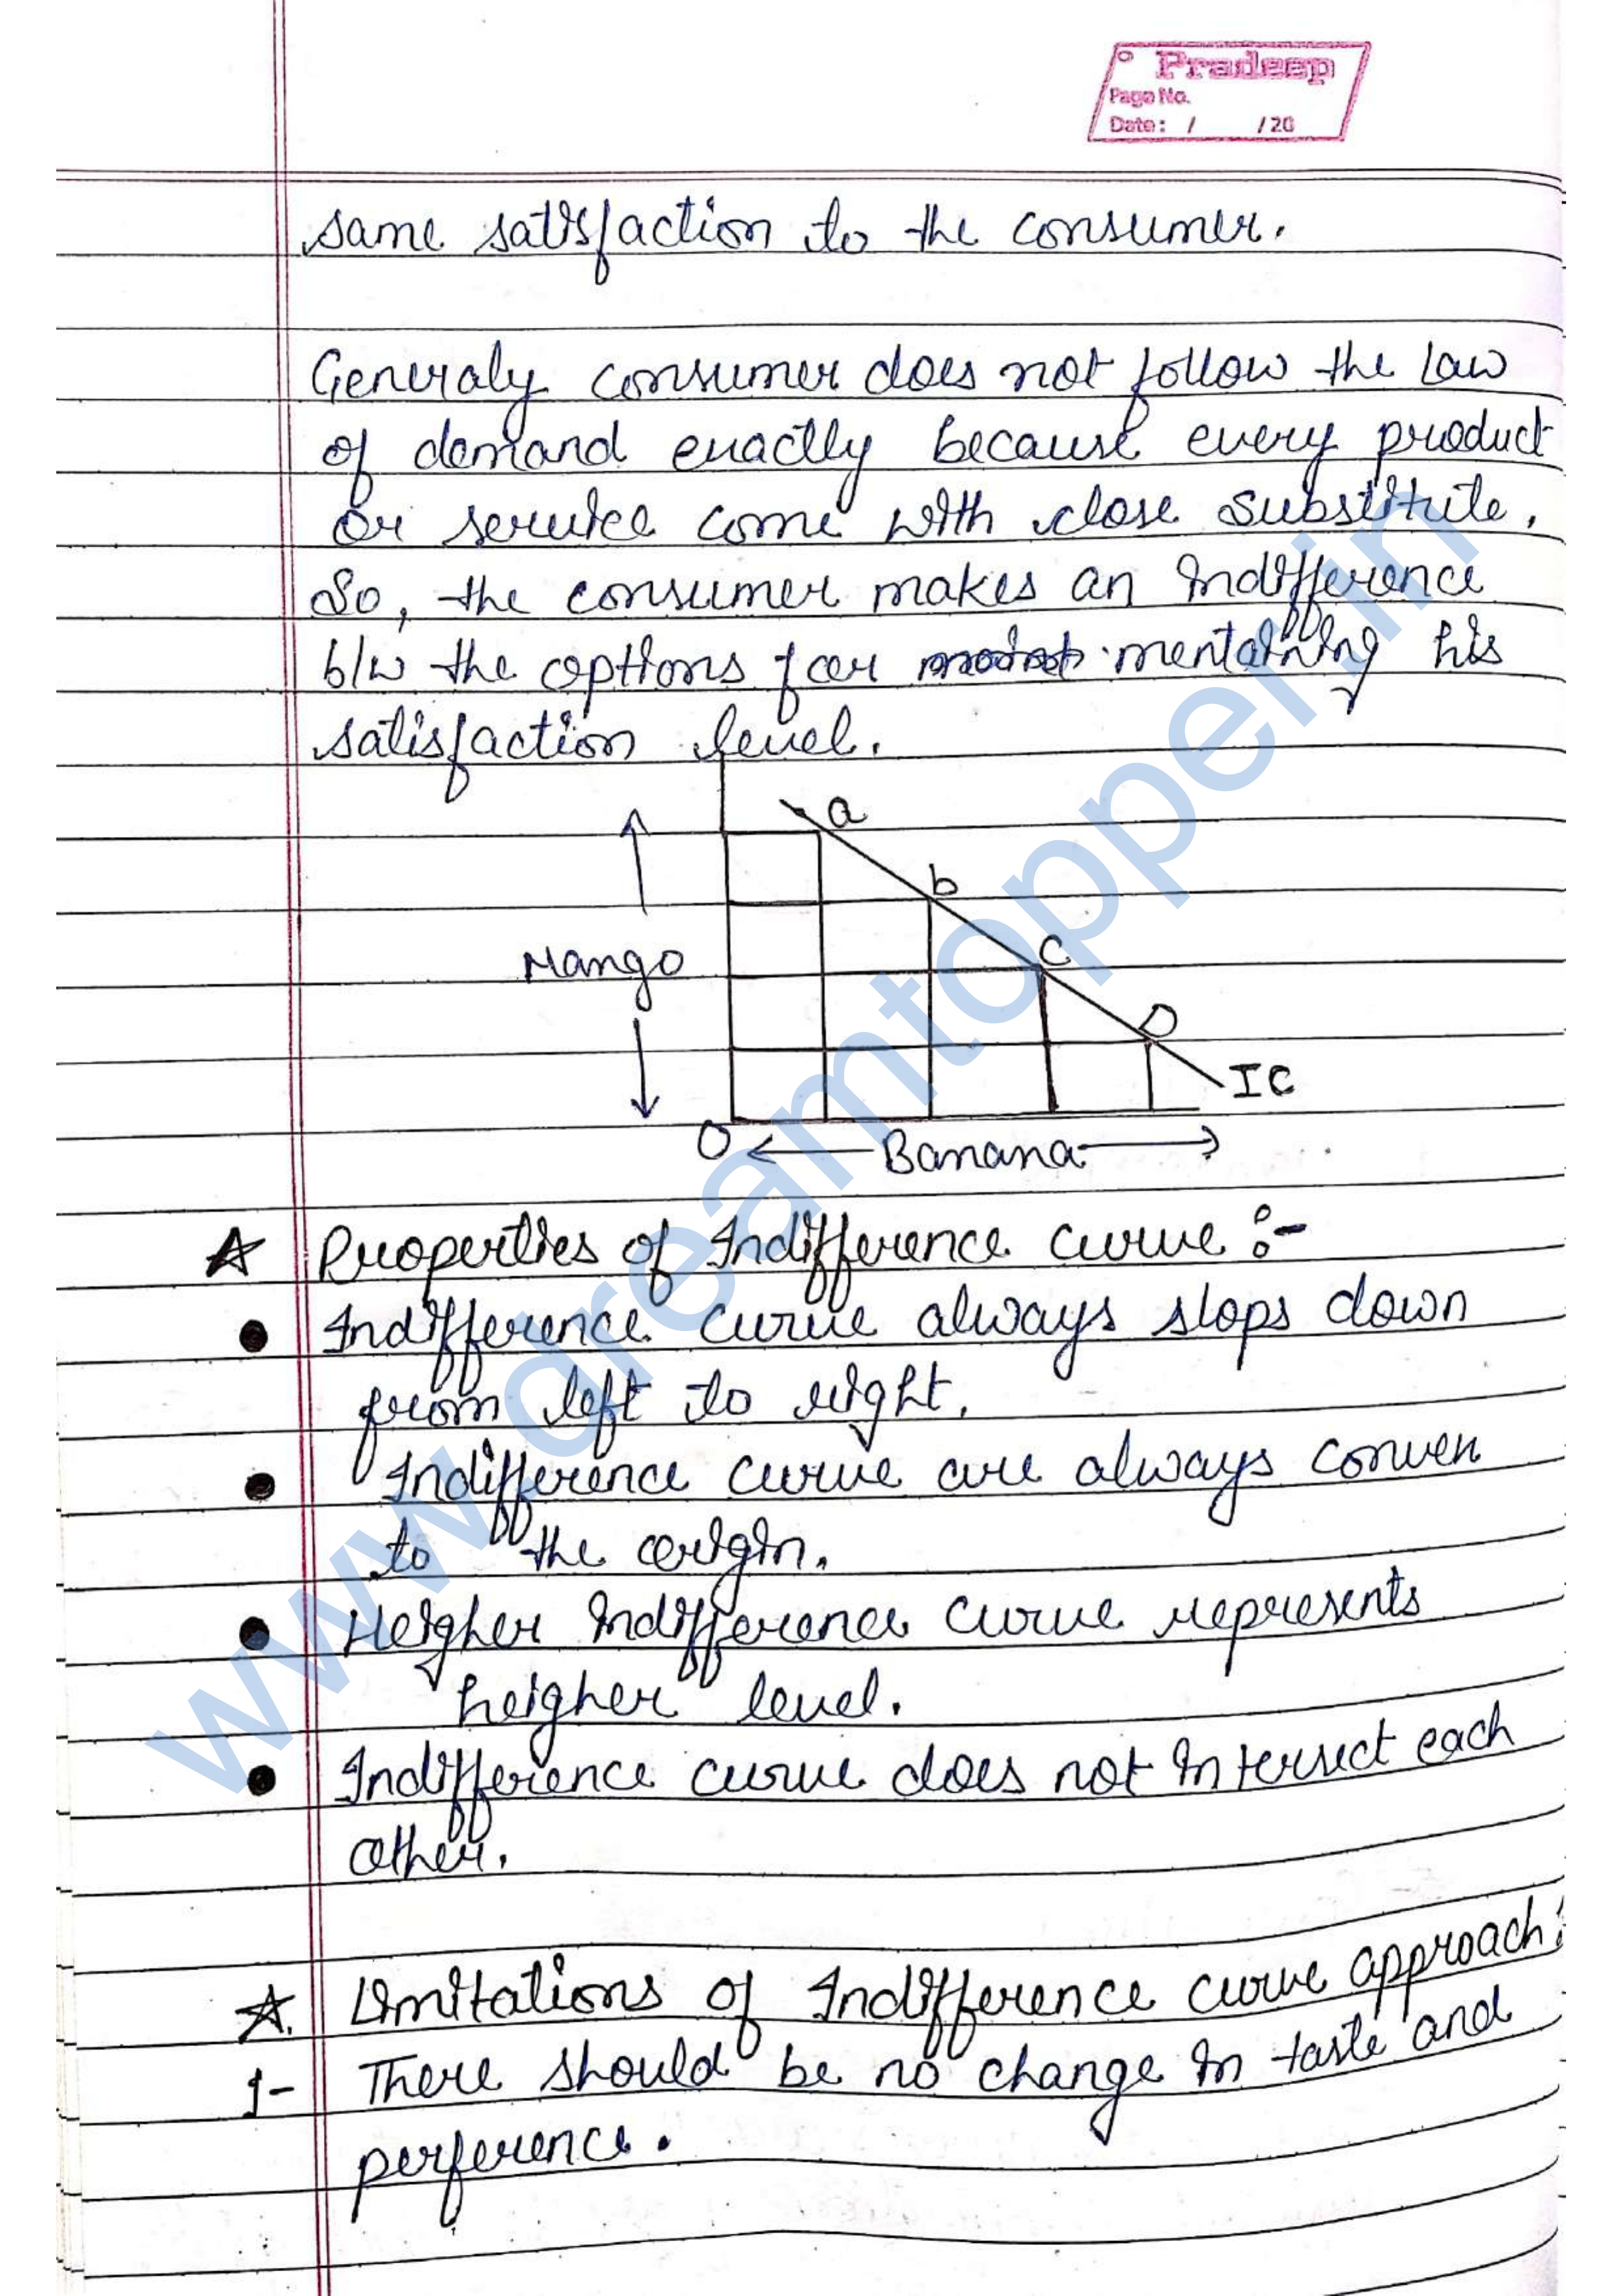 Pradeep
Page No.
Date: / /20
same satisfaction to the consumer.
Generaly consumer does not follow the Law
of demand exactly because every product
or service come with close substitute.
So, the consumer makes an indifference
b/w the options for mentaining his
satisfaction level.
a
b
Mango
C
D
IC
O
Banana
Properties of Indifference curve :-
Indifference curve always slops down
from left to right.
Indifference curve are always convex
to the origin.
Heigher indifference curve represents
heigher level.
Indifference curve does not intersect each
other.
Limitations of Indifference curve approach:
1- There should be no change in taste and
perference.
www.dreamtopper.in